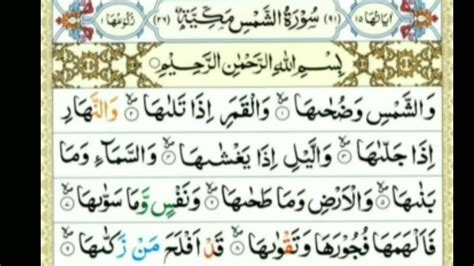 اٰیَاتُهَا ۱۵ (۹۱) سُوْرَةُ الشَّمْسِ مَكِّیَّةٌ (۲۶) رُكُوْعُهَا ۱
بِسْمِ اللّٰهِ الرَّحْمٰنِ الرَّحِیْمِ
وَالشَّمْسِ وَضُحٰىهَا ۱ وَالْقَمَرِ اِذَا تَلٰىهَا ۲ وَالنَّهَارِ
اِذَا جَلّٰىهَا ۳ وَالَّیْلِ اِذَا یَغْشٰىهَا ۴ وَالسَّمَآءِ وَمَا
بَنٰىهَا ۵ وَالْاَرْضِ وَمَا طَحٰىهَا ۶ وَنَفْسٍ وَّمَا سَوّٰىهَا ۷
فَاَلْهَمَهَا فُجُوْرَهَا وَتَقْوٰىهَا ۸ قَدْ اَفْلَحَ مَنْ زَكّٰىهَا ۹